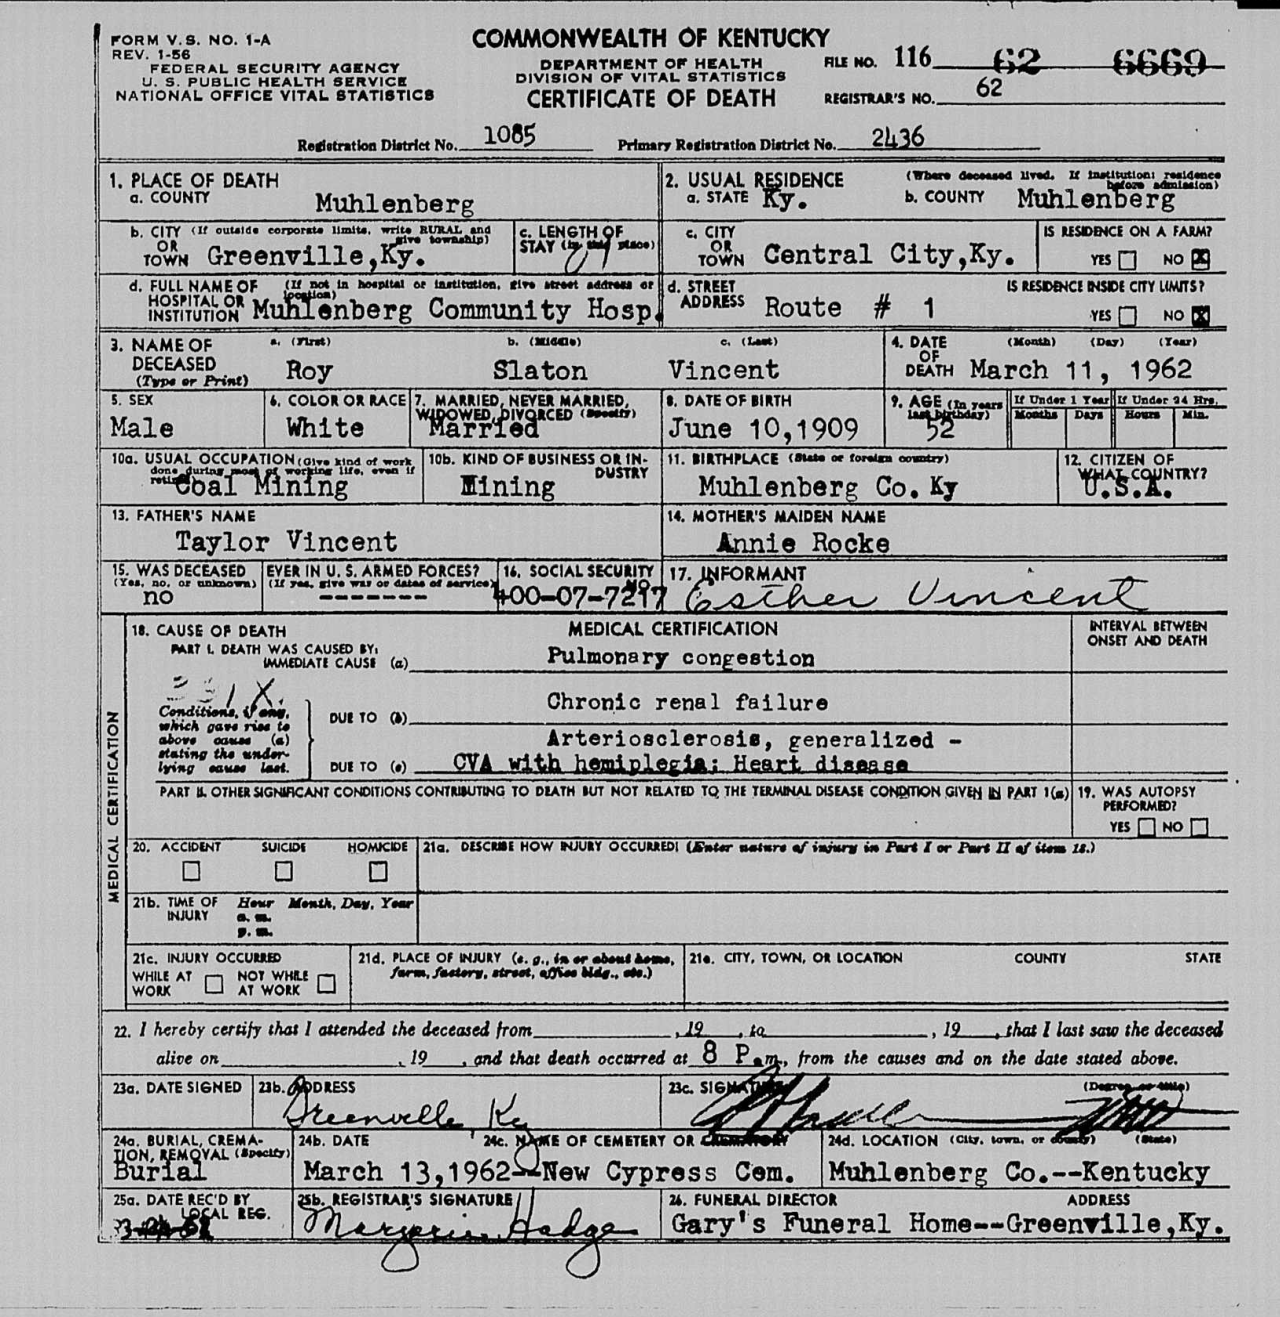 FORM V.S. NO. 1-A
REV. 1-56
FEDERAL SECURITY AGENCY
U. S. PUBLIC HEALTH SERVICE
NATIONAL OFFICE VITAL STATISTICS
COMMONWEALTH OF KENTUCKY
DEPARTMENT OF HEALTH
DIVISION OF VITAL STATISTICS
CERTIFICATE OF DEATH
FILE NO. 116 62 6669
REGISTRAR'S NO. 62
Registration District No. 1085 Primary Registration District No. 2436
1. PLACE OF DEATH
a. COUNTY Muhlenberg
2. USUAL RESIDENCE (Where deceased lived. If institution: residence before admission)
a. STATE Ky. b. COUNTY Muhlenberg
b. CITY (If outside corporate limits, write RURAL and give township)
OR
TOWN Greenville,Ky.
c. LENGTH OF
STAY (in this place)
c. CITY
OR
TOWN Central City,Ky.
IS RESIDENCE ON A FARM?
YES NO X
d. FULL NAME OF (If not in hospital or institution, give street address or location)
HOSPITAL OR
INSTITUTION Muhlenberg Community Hosp.
d. STREET
ADDRESS Route # 1
IS RESIDENCE INSIDE CITY LIMITS?
YES NO X
3. NAME OF
DECEASED
(Type or Print)
a. (First) b. (Middle) c. (Last)
Roy Slaton Vincent
4. DATE
OF
DEATH
(Month) (Day) (Year)
March 11, 1962
5. SEX
Male
6. COLOR OR RACE
White
7. MARRIED, NEVER MARRIED,
WIDOWED, DIVORCED (Specify)
Married
8. DATE OF BIRTH
June 10,1909
9. AGE (In years
last birthday)
52
If Under 1 Year If Under 24 Hrs.
Months Days Hours Min.
10a. USUAL OCCUPATION (Give kind of work
done during most of working life, even if
retired)
Coal Mining
10b. KIND OF BUSINESS OR IN-
DUSTRY
Mining
11. BIRTHPLACE (State or foreign country)
Muhlenberg Co. Ky
12. CITIZEN OF
WHAT COUNTRY?
U.S.A.
13. FATHER'S NAME
Taylor Vincent
14. MOTHER'S MAIDEN NAME
Annie Rocke
15. WAS DECEASED EVER IN U. S. ARMED FORCES?
(Yes, no, or unknown) (If yes, give war or dates of service)
no -------
16. SOCIAL SECURITY
NO.
400-07-7297
17. INFORMANT
Esther Vincent
MEDICAL CERTIFICATION
18. CAUSE OF DEATH
MEDICAL CERTIFICATION
INTERVAL BETWEEN
ONSET AND DEATH
PART I. DEATH WAS CAUSED BY:
IMMEDIATE CAUSE (a) Pulmonary congestion
331X.
Conditions, if any,
which gave rise to
above cause (a)
stating the under-
lying cause last.
DUE TO (b) Chronic renal failure
Arteriosclerosis, generalized -
DUE TO (c) CVA with hemiplegia; Heart disease
PART II. OTHER SIGNIFICANT CONDITIONS CONTRIBUTING TO DEATH BUT NOT RELATED TO THE TERMINAL DISEASE CONDITION GIVEN IN PART 1(a)
19. WAS AUTOPSY
PERFORMED?
YES NO
20. ACCIDENT SUICIDE HOMICIDE
21a. DESCRIBE HOW INJURY OCCURRED: (Enter nature of injury in Part I or Part II of item 18.)
21b. TIME OF
INJURY
Hour Month, Day, Year
a. m.
p. m.
21c. INJURY OCCURRED
WHILE AT
WORK
NOT WHILE
AT WORK
21d. PLACE OF INJURY (e. g., in or about home,
farm, factory, street, office bldg., etc.)
21e. CITY, TOWN, OR LOCATION COUNTY STATE
22. I hereby certify that I attended the deceased from , 19 , to , 19 , that I last saw the deceased
alive on , 19 , and that death occurred at 8 P.m., from the causes and on the date stated above.
23a. DATE SIGNED
23b. ADDRESS
Greenville, Ky
23c. SIGNATURE
(Degree or title)
24a. BURIAL, CREMA-
TION, REMOVAL (Specify)
Burial
24b. DATE 24c. NAME OF CEMETERY OR CREMATORY
March 13,1962--New Cypress Cem.
24d. LOCATION (City, town, or county) (State)
Muhlenberg Co.--Kentucky
25a. DATE REC'D BY
LOCAL REG.
25b. REGISTRAR'S SIGNATURE
Marjorie Hadge
26. FUNERAL DIRECTOR ADDRESS
Gary's Funeral Home--Greenville,Ky.